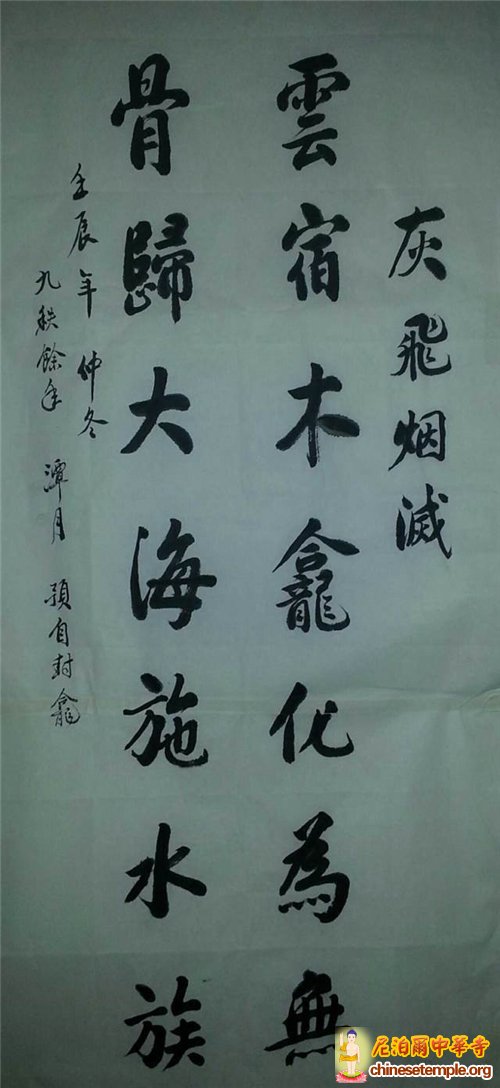 灰飛烟滅
雲宿木龕化為無
骨歸大海施水族
壬辰年仲冬
九秩餘年 潭月 預自封龕
尼泊爾中華寺
chinesetemple.org